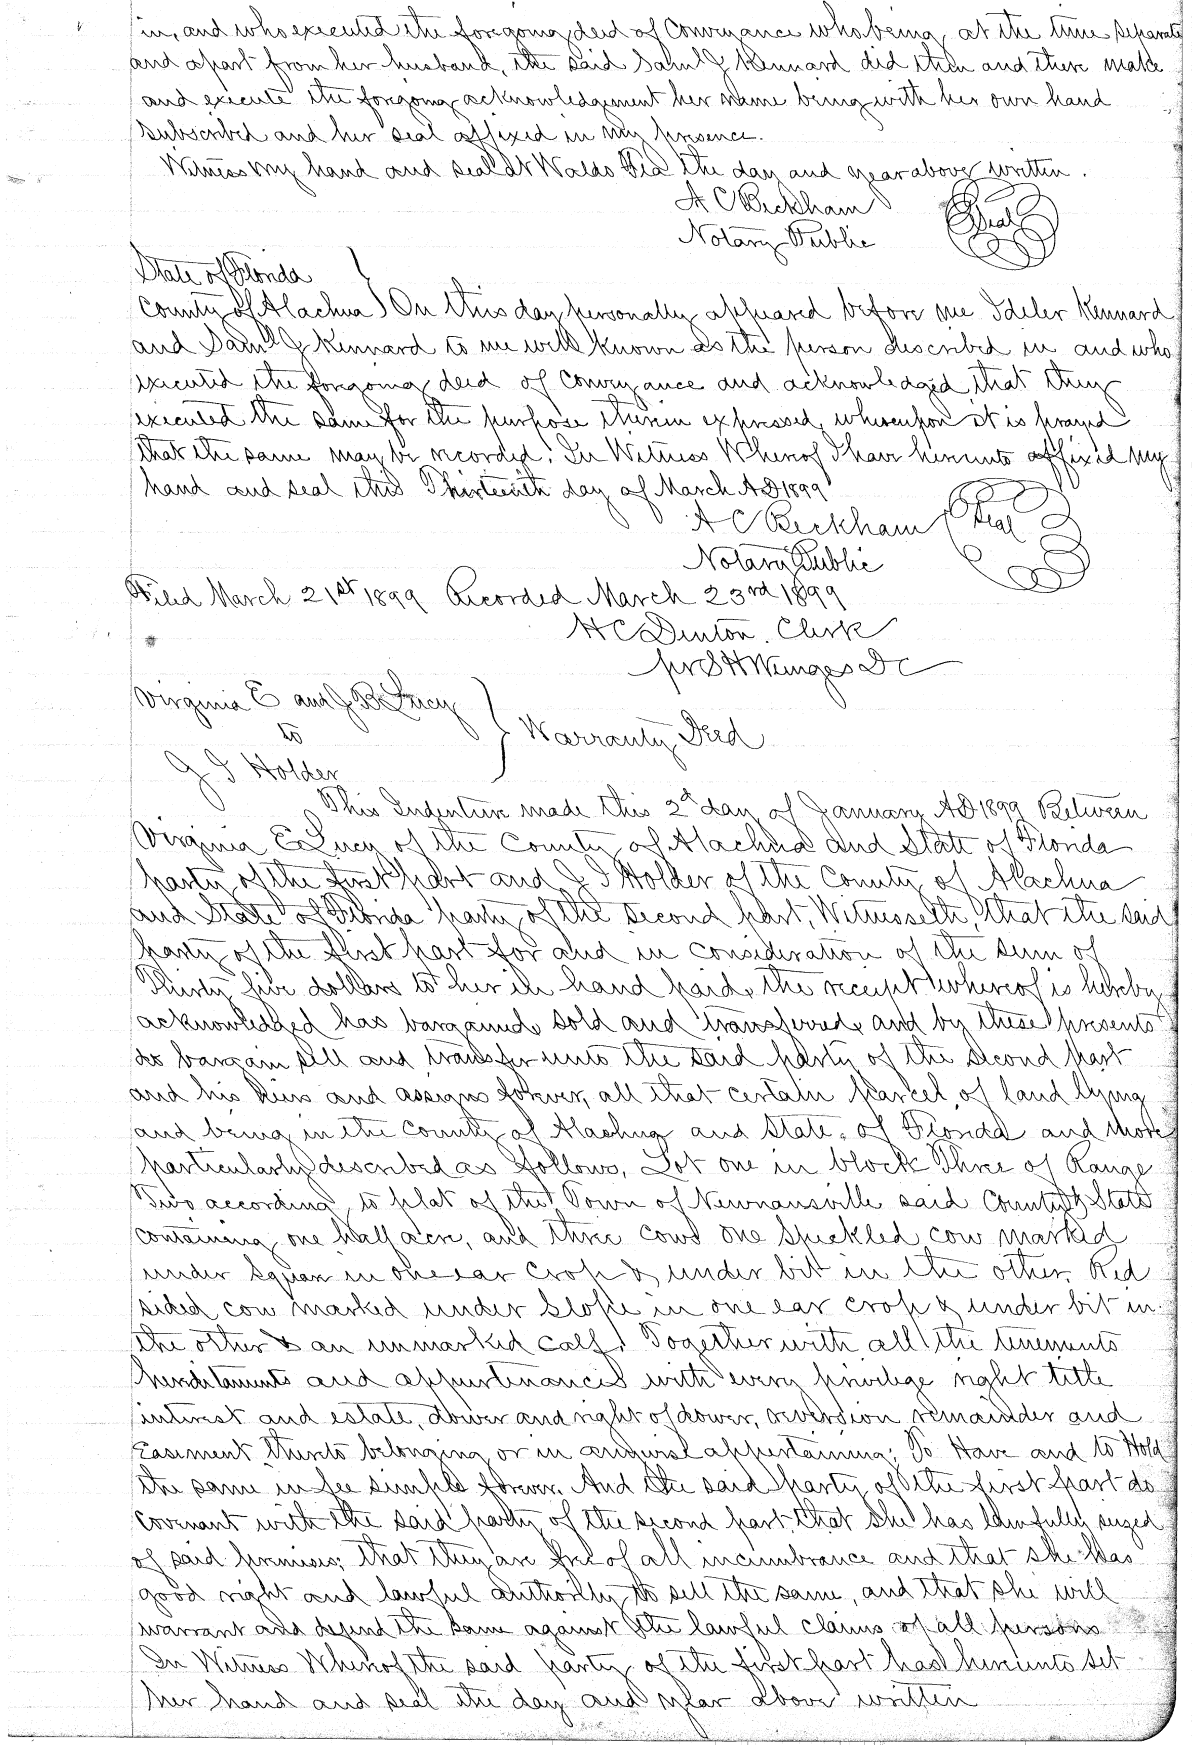 in, and who executed the forgoing deed of Conveyance who being at the time separate
and apart from her husband, the said Saml J Kennard did then and there make
and execute the forgoing acknowledgement her name being with her own hand
subscribed and her seal affixed in my presence.
Witness my hand and seal at Waldo Fla the day and year above written.
A C Beckham
Seal
Notary Public
State of Florida
County of Alachua } On this day personally appeared before me Kennard
and Saml J Kennard to me well known as the person described in and who
executed the forgoing deed of Conveyance and acknowledged that they
executed the same for the purpose therein expressed, whereupon it is prayed
that the same may be recorded. In Witness Whereof I have hereunto affixed my
hand and seal this Thirteenth day of March AD 1899
A C Beckham Seal
Notary Public
Filed March 21st 1899 Recorded March 23rd 1899
H C Denton. Clerk
pr S H Wienges D C
Virginia E and J B Lucy
to } Warranty Deed
J I Holder
This Indenture made this 2d day of January AD 1899 Between
Virginia E Lucy of the County of Alachua and State of Florida
party of the first part and J I Holder of the County of Alachua
and State of Florida party of the second part, Witnesseth, that the said
party of the first part for and in consideration of the sum of
Thirty five dollars to her in hand paid, the receipt whereof is hereby
acknowledged has bargained, sold and transferred, and by these presents
do bargain sell and transfer unto the said party of the second part
and his heirs and assigns forever, all that certain parcel of land lying
and being in the County of Alachua and State of Florida and more
particularly described as follows, Lot one in block Three of Range
Two according to plat of the Town of Newnansville said County & State
containing one half acre, and three cows one speckled cow marked
under square in one ear crop & under bit in the other. Red
sided cow marked under slope in one ear crop & under bit in
the other & an unmarked calf. Together with all the tenements
hereditaments and appurtenances with every privilege right title
interest and estate, dower and right of dower, reversion remainder and
Easement thereto belonging or in anywise appertaining; To Have and to Hold
the same in fee simple forever. And the said party of the first part do
covenant with the said party of the second part that she has lawfully seized
of said premises; that they are free of all incumbrance and that she has
good right and lawful authority to sell the same, and that she will
warrant and defend the same against the lawful claims of all persons
In Witness Whereof the said party of the first part has hereunto set
her hand and seal the day and year above written